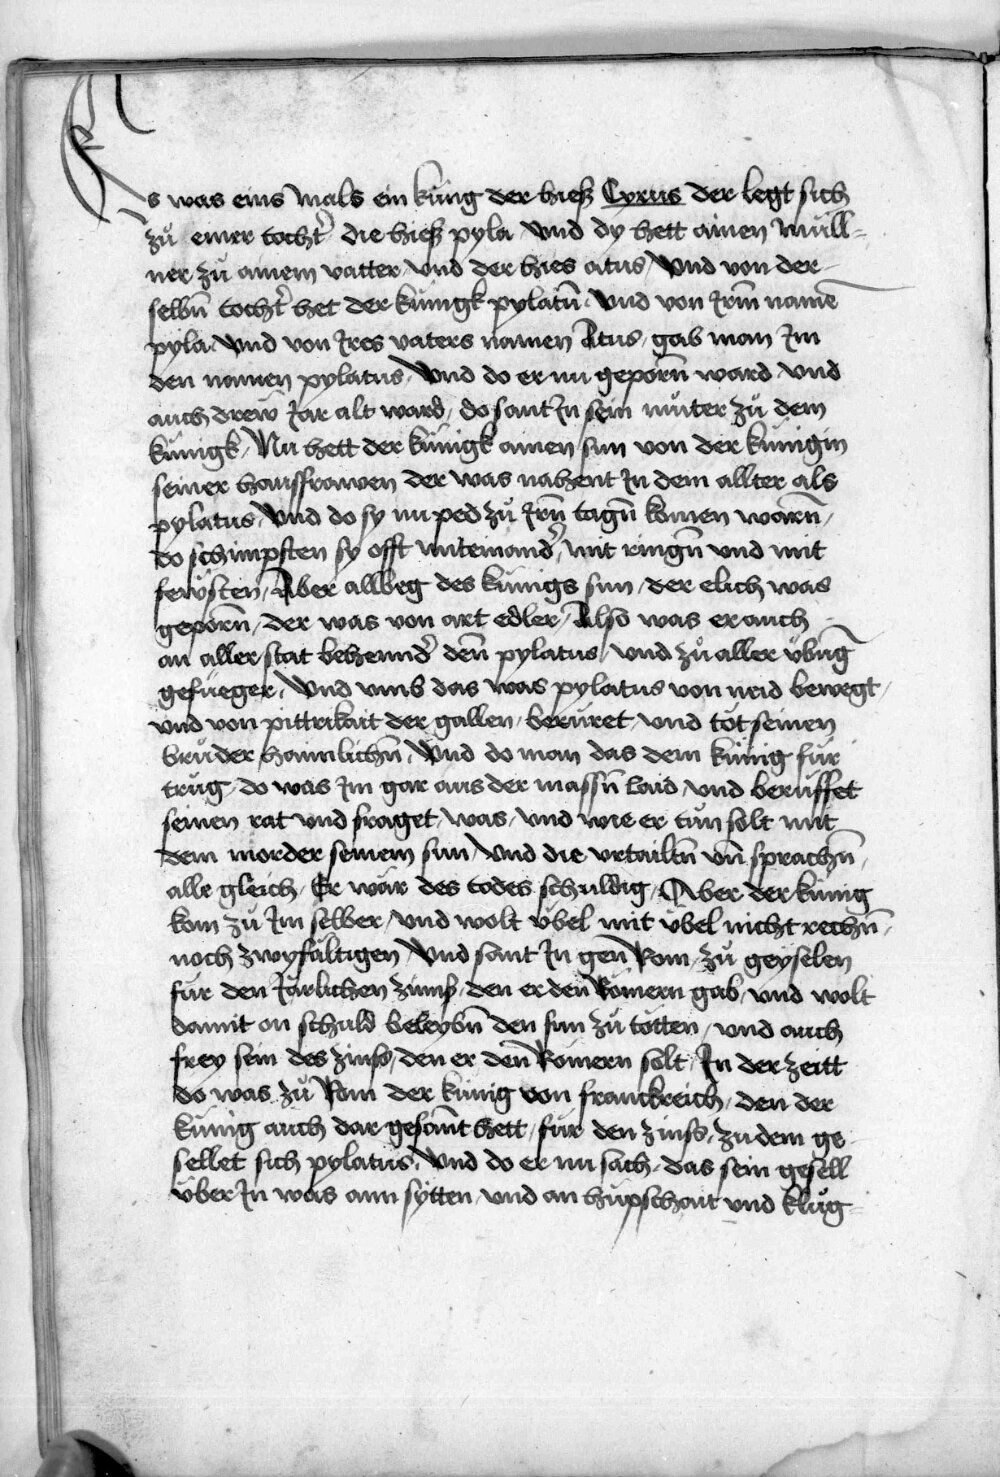 Es was eins mals ein kung der hieß Cyrus der legt sich
zů einer tocht̛ die hieß pyla vnd dy hett ainen müll=
ner zů ainem vatter vnd der hies atus / vnd von der
selbn̄ tocht̛ het der künigk pylatū vnd von Irm̄ namē
pyla vnd von Ires vaters namen Atus / gab man Im
den namen pylatus / vnd do er nu geporn̄ ward vnd
auch drew Jar alt ward / do sant In sein můter zů dem
künigk / Nu hett der künigk ainen sun von der künigin
seiner hausfrawen der was nahent In dem allter als
pylatus / vnd do sy nu ped zů Irn̄ tagn̄ komen warn̄ /
do schimpften sy offt miteinand̛ / mit ringn̄ vnd mit
fewsten / Aber allweg des künigs sun / der elich was
geporn̄ / der was von art edler / Also was er auch
an aller stat behennd̛ den̄ pylatus / vnd zů aller vbūg
gefüeger / vnd vmb das was pylatus von neid bewegt /
vnd von pittrikait der gallen / berüret / vnd tot seinen
brůder haimlichn̄ / vnd do man das dem künig für
trůg / do was Im gar aus der massn̄ laid / vnd beruffet
seinen rat vnd fraget / was / vnd wie er tun solt mit
dem morder seinem sun / vnd die vrtailtn̄ vn̄ sprachn̄ /
alle gleich / Er wär des todes schuldig / Aber der künig
kom zů Im selber / vnd wolt übel mit übel nicht rechn̄ /
noch zwyfältigen / vnd sant In gen̄ Rom / zů geyselen
für den Järlichen zinß / den er den Römern gab / vnd wolt
damit on schuld beleybn̄ den sun zů tötten / vnd auch
frey sein des zinß / den er den̄ Römern solt / In der zeitt
do was zů Rom der künig von franckreich / den der
künig auch dar gesan̄t hett / für den zinß / zu dem ge
sellet sich pylatus / vnd do er nu sach / das sein gesell
über In was ann sytten / vnd an hüpschait vnd klůg=